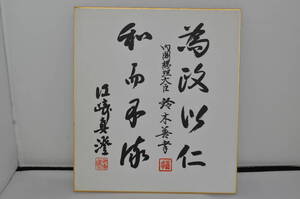 為政以仁
内閣総理大臣 鈴木善幸
和而不流
江崎真澄